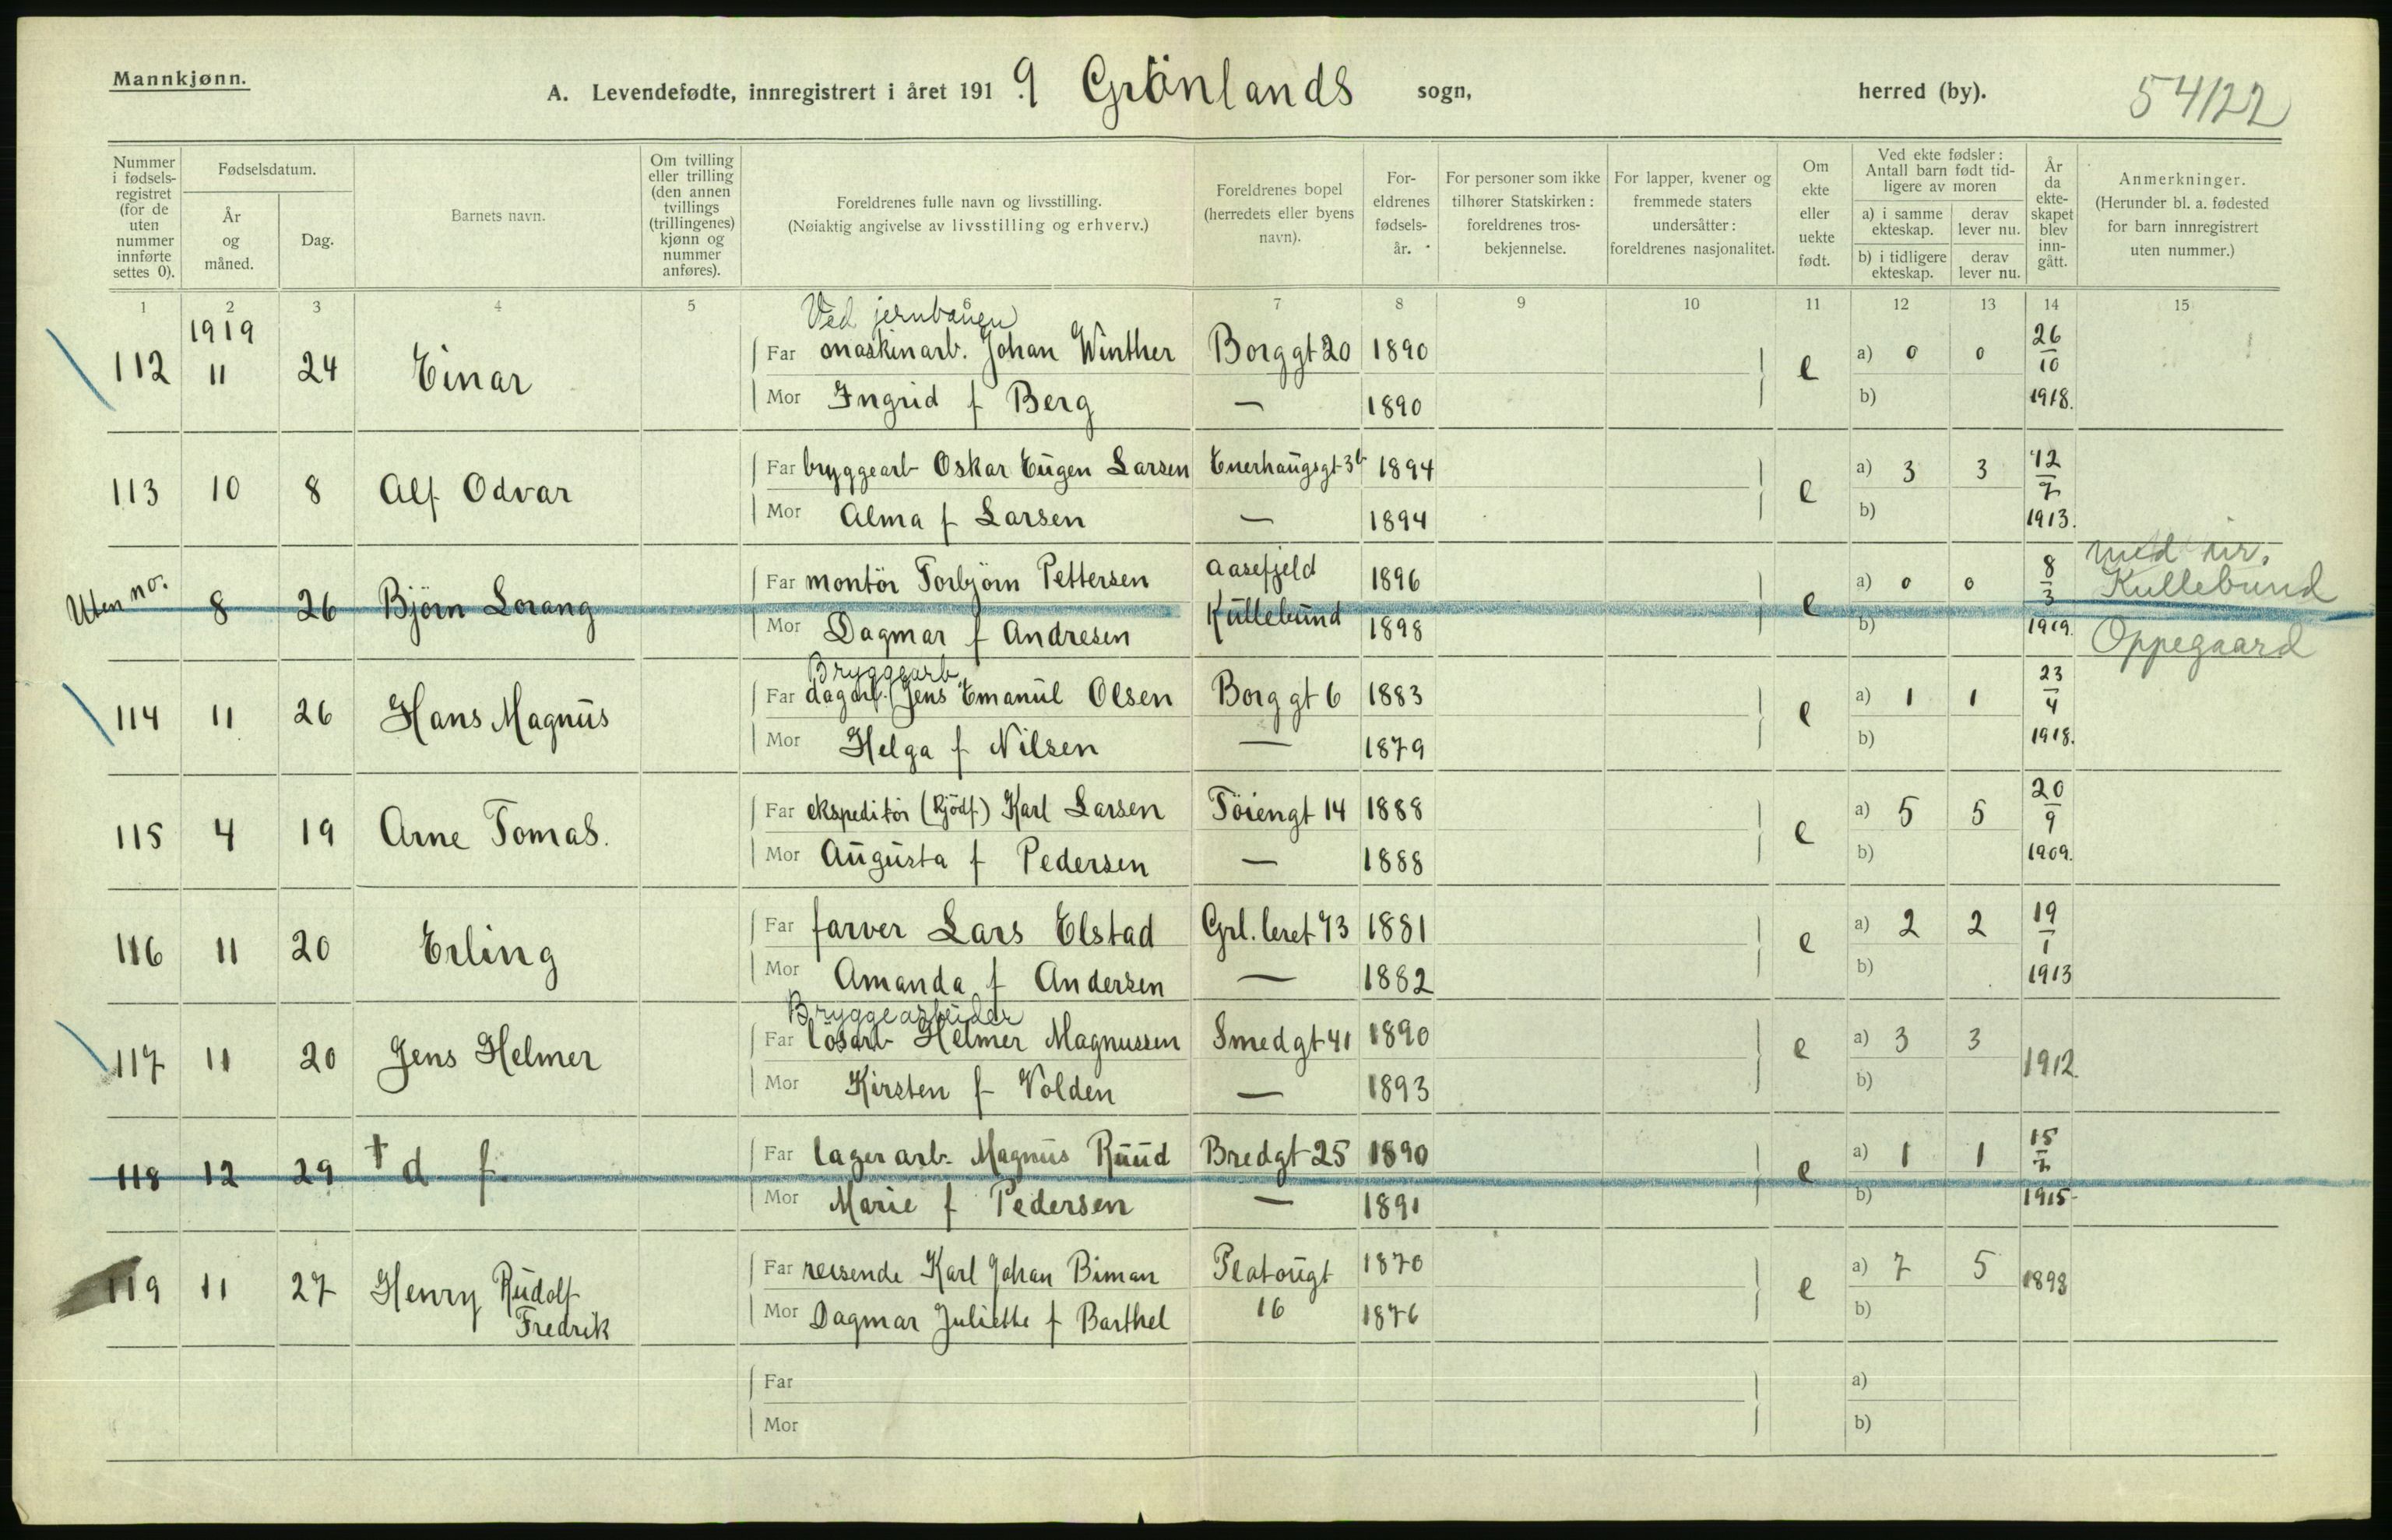 Mannkjønn.
A. Levendefødte, innregistrert i året 1919 Grönlands sogn, herred (by).
54/22
Nummer i fødsels-registret (for de uten nummer innførte settes 0).
Fødselsdatum.
År og måned.
Dag.
Barnets navn.
Om tvilling eller trilling (den annen tvillings (trillingenes) kjønn og nummer anføres).
Foreldrenes fulle navn og livsstilling.
(Nøiaktig angivelse av livsstilling og erhverv.)
Foreldrenes bopel (herredets eller byens navn).
For-eldrenes fødsels-år.
For personer som ikke tilhører Statskirken: foreldrenes tros-bekjennelse.
For lapper, kvener og fremmede staters undersåtter: foreldrenes nasjonalitet.
Om ekte eller uekte født.
Ved ekte fødsler: Antall barn født tid-ligere av moren
a) i samme ekteskap.
derav lever nu.
b) i tidligere ekteskap.
derav lever nu.
År da ekte-skapet blev inn-gått.
Anmerkninger.
(Herunder bl. a. fødested for barn innregistrert uten nummer.)
1 2 3 4 5 7 8 9 10 11 12 13 14 15
1919
Ved jernbanen
112 11 24 Einar Far maskinarb. Johan Winther Borggt 20 1890 e a) 0 0 26/10
Mor Ingrid f Berg — 1890 b) 1918.
113 10 8 Alf Odvar Far bryggearb Oskar Eugen Larsen Enerhaugsgt 3b 1894 e a) 3 3 12/7
Mor Alma f Larsen — 1894 b) 1913.
Uten no. 8 26 Björn Lorang Far montör Torbjörn Pettersen Aasefjeld 1896 e a) 0 0 8/3 med nr. Kullebund
Mor Dagmar f Andresen Kullebund 1898 b) 1919. Oppegaard
Bryggearb.
114 11 26 Hans Magnus Far dagarb. (Jens Emanuil Olsen Borggt 6 1883 e a) 1 1 23/4
Mor Helga f Nilsen — 1879 b) 1918.
115 4 19 Arne Tomas. Far ekspeditör (kjödf.) Karl Larsen Töiengt 14 1888 e a) 5 5 20/9
Mor Augusta f Pedersen — 1888 b) 1909.
116 11 20 Erling Far farver Lars Elstad Grl. leret 73 1881 e a) 2 2 19/1
Mor Amanda f Andersen — 1882 b) 1913
Bryggearbeider
117 11 20 Jens Helmer Far lösarb Helmer Magnussen Smedgt 41 1890 e a) 3 3 1912.
Mor Kirsten f Volden — 1893 b)
118 12 29 † d f Far lagerarb. Magnus Ruud Bredgt 25 1890 e a) 1 1 15/7
Mor Marie f Pedersen — 1891 b) 1915.
119 11 27 Henry Rudolf Fredrik Far reisende Karl Johan Biman Platougt 1870 e a) 7 5 1898
Mor Dagmar Juliette f Barthel 16 1876 b)
Far a)
Mor b)